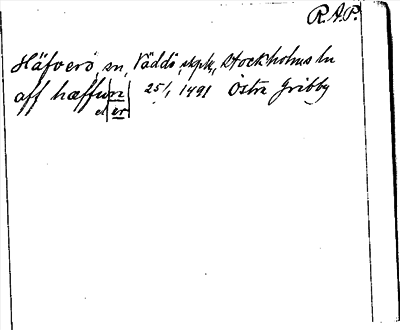 R.A.P.
Häfverö, sn, Väddö, skpk, Stockholms ln
aff hæffuru 25/1 1491 Östra Gribby
el er